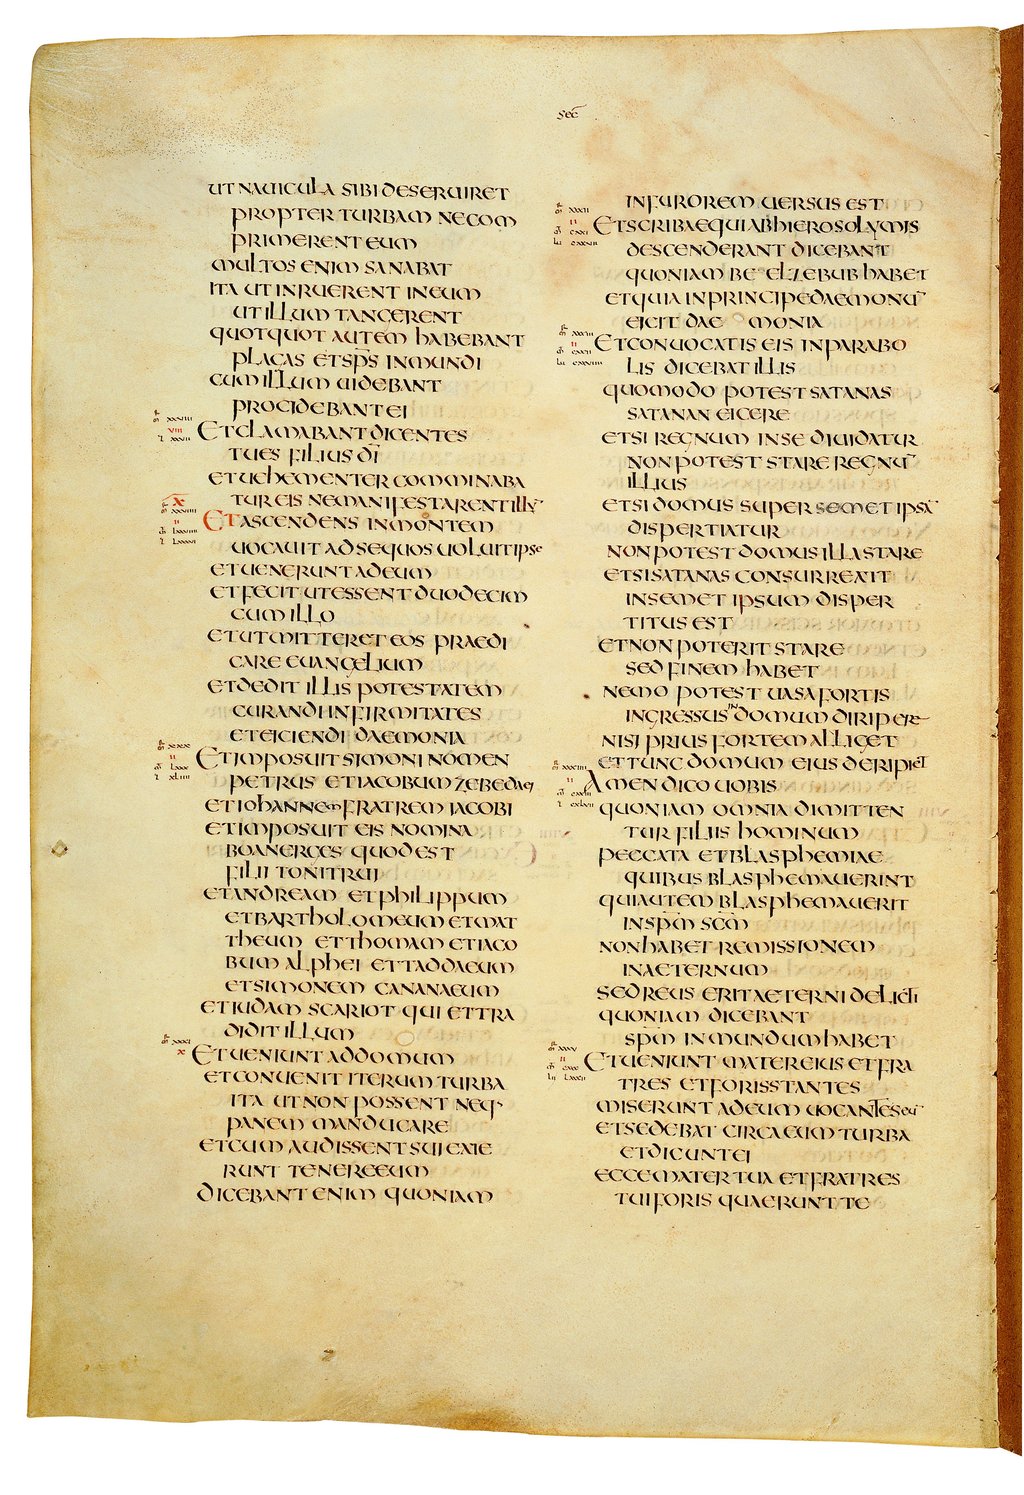 sec
UT NAUICULA SIBI DESERUIRET
PROPTER TURBAM NE COM
PRIMERENT EUM
MULTOS ENIM SANABAT
ITA UT INRUERENT IN EUM
UT ILLUM TANGERENT
QUOTQUOT AUTEM HABEBANT
PLAGAS ET SP̅S INMUNDI
CUM ILLUM UIDEBANT
PROCIDEBANT EI
ET CLAMABANT DICENTES
TU ES FILIUS DI̅
ET UEHEMENTER COMMINABA
TUR EIS NE MANIFESTARENT ILLU̅
X
ET ASCENDENS IN MONTEM
UOCAUIT AD SE QUOS UOLUIT IPSE
ET UENERUNT AD EUM
ET FECIT UT ESSENT DUODECIM
CUM ILLO
ET UT MITTERET EOS PRAEDI
CARE EUANGELIUM
ET DEDIT ILLIS POTESTATEM
CURANDI INFIRMITATES
ET EICIENDI DAEMONIA
ET IMPOSUIT SIMONI NOMEN
PETRUS ET IACOBUM ZEBEDAEI
ET IOHANNEM FRATREM IACOBI
ET IMPOSUIT EIS NOMINA
BOANERGES QUOD EST
FILII TONITRUI
ET ANDREAM ET PHILIPPUM
ET BARTHOLOMEUM ET MAT
THEUM ET THOMAM ET IACO
BUM ALPHEI ET TADDAEUM
ET SIMONEM CANANAEUM
ET IUDAM SCARIOT QUI ET TRA
DIDIT ILLUM
ET UENIUNT AD DOMUM
ET CONUENIT ITERUM TURBA
ITA UT NON POSSENT NEQ·
PANEM MANDUCARE
ET CUM AUDISSENT SUI EXIE
RUNT TENERE EUM
DICEBANT ENIM QUONIAM
IN FUROREM UERSUS EST
ET SCRIBAE QUI AB HIEROSOLYMIS
DESCENDERANT DICEBANT
QUONIAM BEELZEBUB HABET
ET QUIA IN PRINCIPE DAEMONU̅
EICIT DAEMONIA
ET CONUOCATIS EIS IN PARABO
LIS DICEBAT ILLIS
QUOMODO POTEST SATANAS
SATANAN EICERE
ET SI REGNUM IN SE DIUIDATUR
NON POTEST STARE REGNU̅
ILLIUS
ET SI DOMUS SUPER SEMET IPSA̅
DISPERTIATUR
NON POTEST DOMUS ILLA STARE
ET SI SATANAS CONSURREXIT
IN SEMET IPSUM DISPER
TITUS EST
ET NON POTERIT STARE
SED FINEM HABET
NEMO POTEST UASA FORTIS
INGRESSUS IN DOMUM DIRIPERE
NISI PRIUS FORTEM ALLIGET
ET TUNC DOMUM EIUS DERIPIET
AMEN DICO UOBIS
QUONIAM OMNIA DIMITTEN
TUR FILIIS HOMINUM
PECCATA ET BLASPHEMIAE
QUIBUS BLASPHEMAUERINT
QUI AUTEM BLASPHEMAUERIT
IN SP̅M SC̅M
NON HABET REMISSIONEM
IN AETERNUM
SED REUS ERIT AETERNI DELICTI
QUONIAM DICEBANT
SP̅M INMUNDUM HABET
ET UENIUNT MATER EIUS ET FRA
TRES ET FORIS STANTES
MISERUNT AD EUM UOCANTES EU̅
ET SEDEBAT CIRCA EUM TURBA
ET DICUNT EI
ECCE MATER TUA ET FRATRES
TUI FORIS QUAERUNT TE